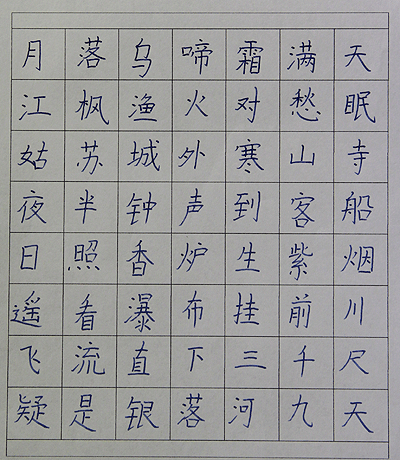 月落乌啼霜满天
江枫渔火对愁眠
姑苏城外寒山寺
夜半钟声到客船
日照香炉生紫烟
遥看瀑布挂前川
飞流直下三千尺
疑是银落河九天